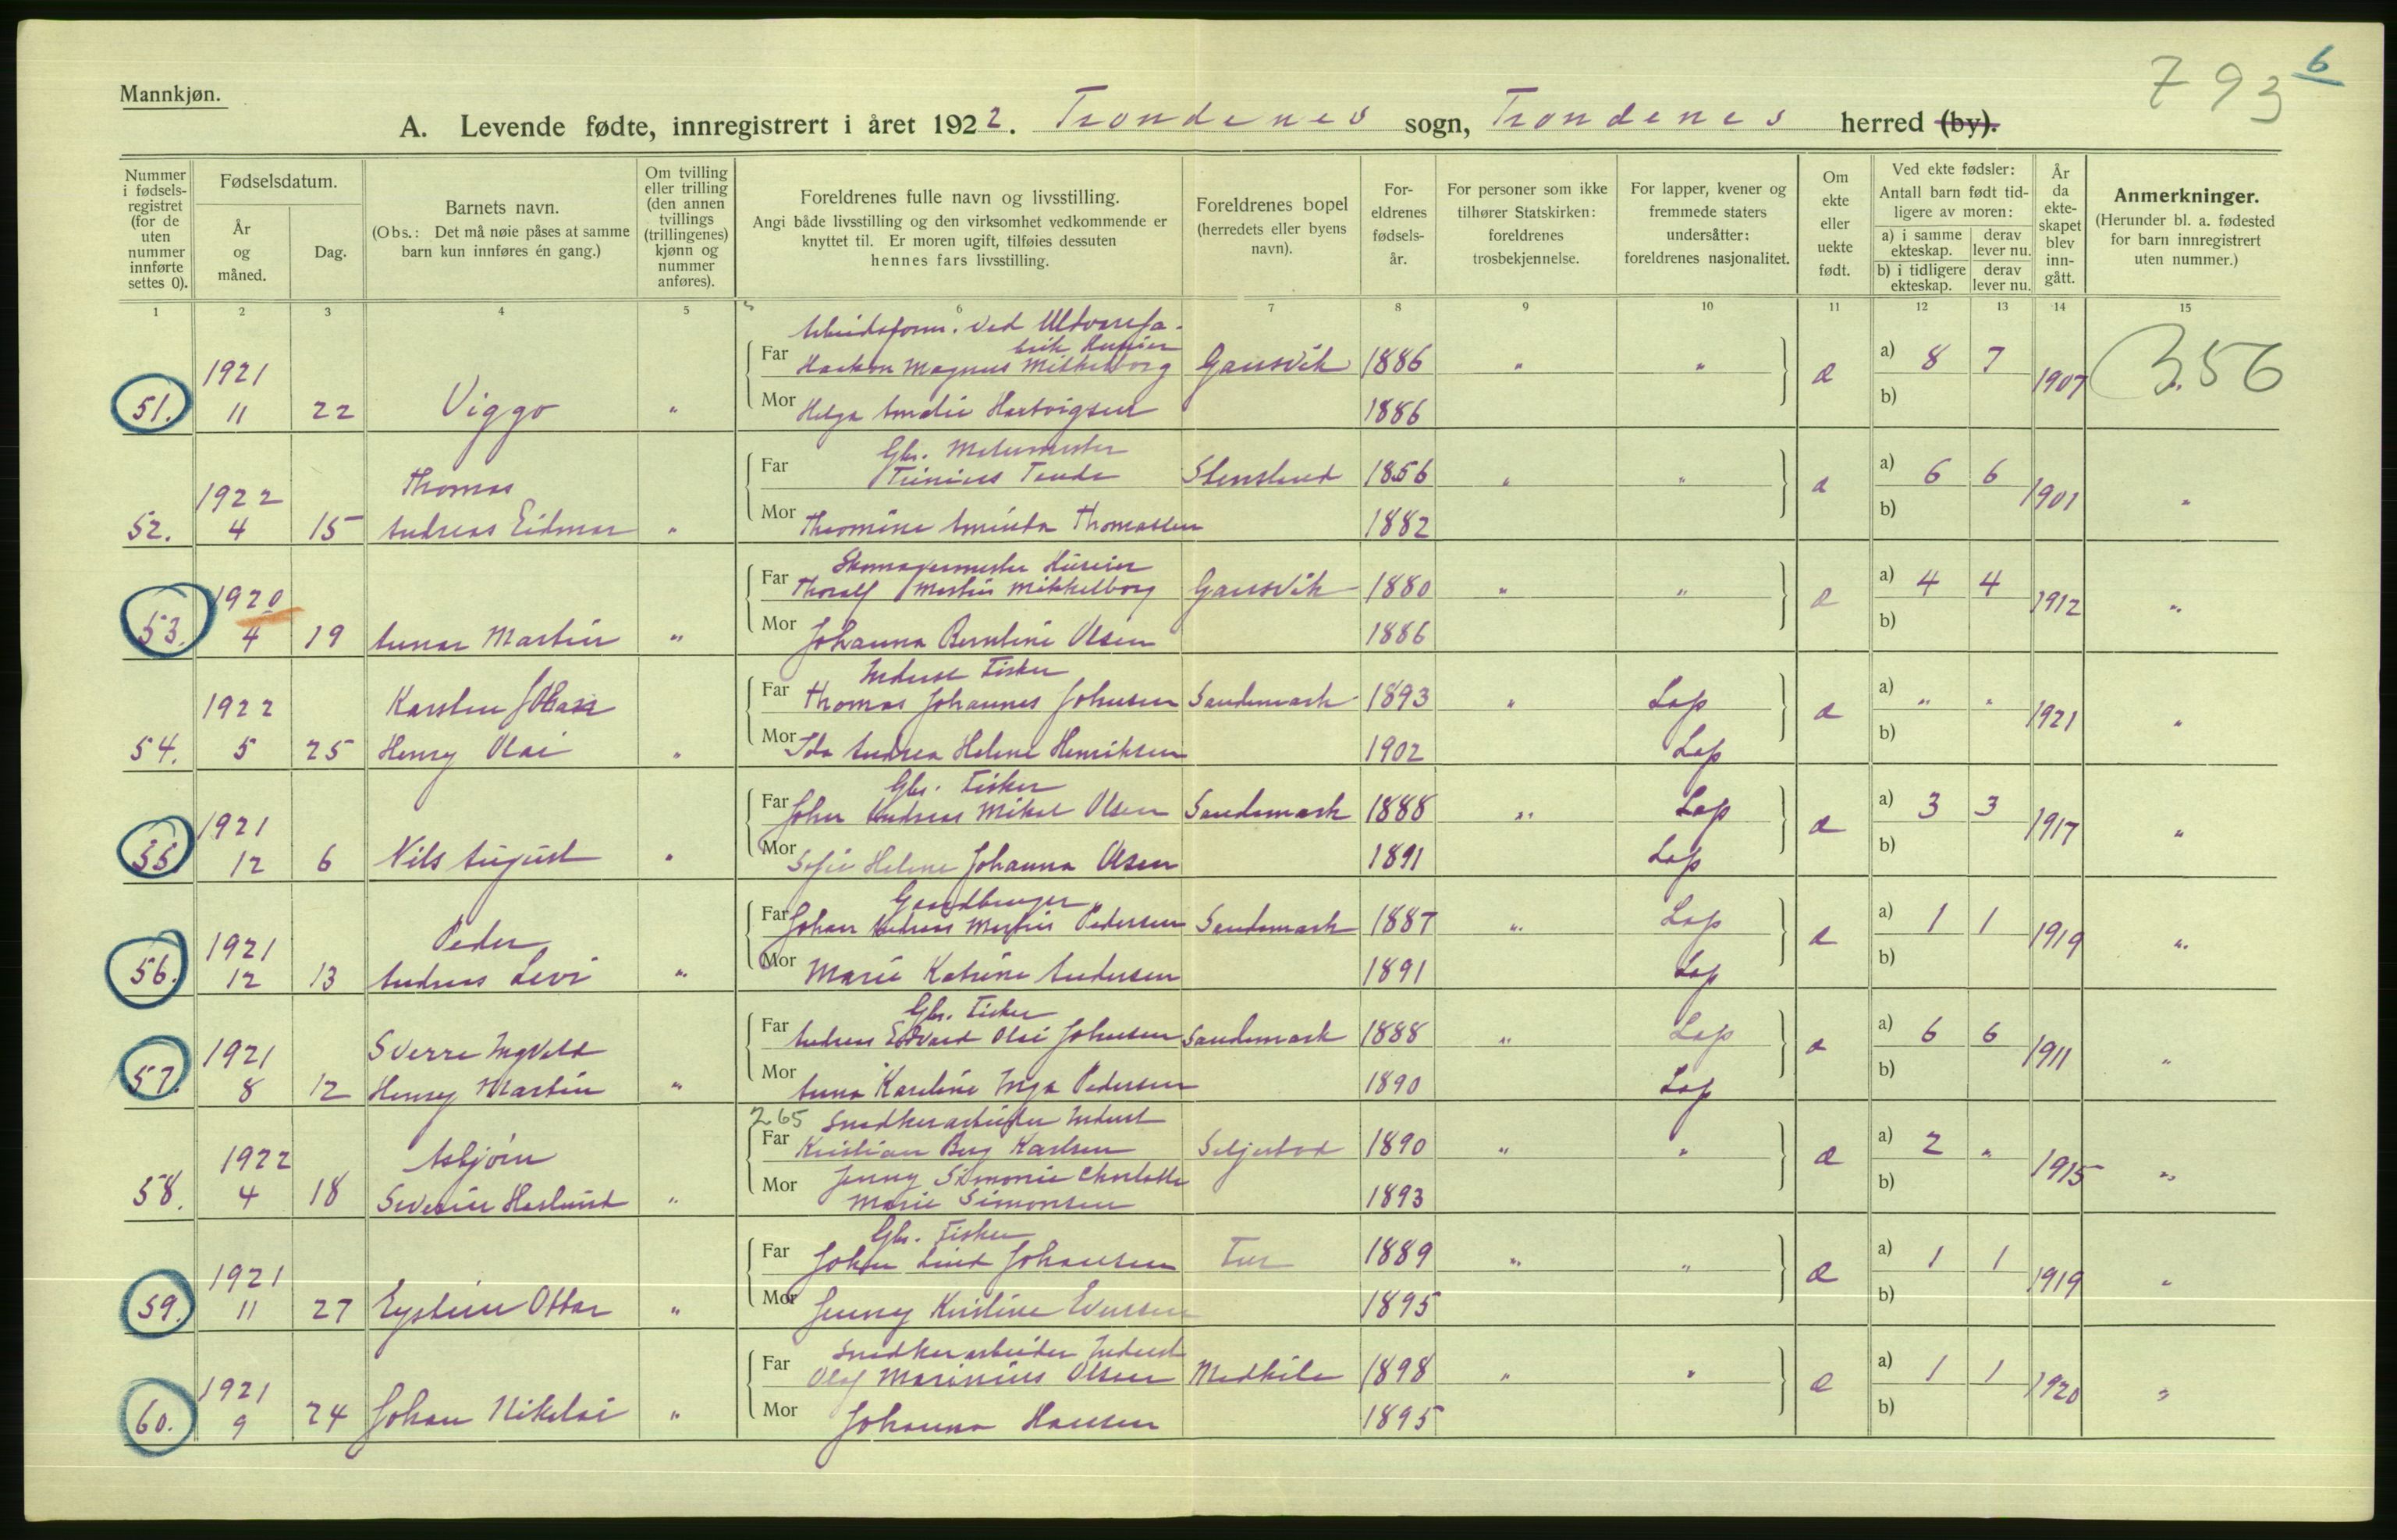 793
6
Mannkjøn.
A. Levende fødte, innregistrert i året 1922. Trondenes sogn, Trondenes herred (by).
Nummer i fødsels-registret (for de uten nummer innførte settes 0).
Fødselsdatum.
År og måned.
Dag.
Barnets navn.
(Obs.: Det må nøie påses at samme barn kun innføres én gang.)
Om tvilling eller trilling (den annen tvillings (trillingenes) kjønn og nummer anføres).
Foreldrenes fulle navn og livsstilling.
Angi både livsstilling og den virksomhet vedkommende er knyttet til. Er moren ugift, tilføies dessuten hennes fars livsstilling.
Foreldrenes bopel (herredets eller byens navn).
For-eldrenes fødsels-år.
For personer som ikke tilhører Statskirken: foreldrenes trosbekjennelse.
For lapper, kvener og fremmede staters undersåtter: foreldrenes nasjonalitet.
Om ekte eller uekte født.
Ved ekte fødsler: Antall barn født tid-ligere av moren:
a) i samme ekteskap. derav lever nu.
b) i tidligere ekteskap. derav lever nu.
År da ekte-skapet blev inn-gått.
Anmerkninger.
(Herunder bl. a. fødested for barn innregistrert uten nummer.)
1 2 3 4 5 6 7 8 9 10 11 12 13 14 15
Arbeidsform. ved Uldvarefa-
brik Husier
1921 Far Haakon Magnus Mikkelborg Gausvik 1886 " " a) 8 7 356
51. 11 22 Viggo " Mor Helga Amalie Hartvigsen 1886 e b) 1907
Gbr.
1922 Thomas Far Stensland 1856 " " a) 6 6
52. 4 15 Andreas Eidmar " Mor Thomine Aminda Thomassen 1882 e b) 1901 "
Skomagermester Husier
1920 Far Thoralf Martin Mikkelborg Gausvik 1880 " " a) 4 4
53. 4 19 Martin " Mor Johanna Berntine Olsen 1886 e b) 1912 "
Inderst Fisker
1922 Karsten Johan Far Thomas Johannes Johnsen Sandemark 1893 " Lap a) " "
54. 5 25 Henry Olai " Mor Ida Andrea Helene Henriksen 1902 Lap e b) 1921 "
Gbr. Fisker
1921 Far John Andreas Mikal Olsen Sandemark 1888 " Lap a) 3 3
55. 12 6 Nils August " Mor Sofie Helene Johanna Olsen 1891 Lap e b) 1917 "
Gaardbruger
1921 Peder Far Johan Andreas Martin Pedersen Sandemark 1887 " Lap a) 1 1
56. 12 13 Andreas Levi " Mor Marie Katrine Andersen 1891 Lap e b) 1919 "
Gbr. Fisker
1921 Sverre Ingvald Far Andreas Edvard Olai Johnsen Sandemark 1888 " Lap a) 6 6
57. 8 12 Henry Martin " Mor Anna Kareline Inga Pedersen 1890 Lap e b) 1911 "
265 Snedkerarbeider Inderst
1922 Asbjørn Far Kristian Berg Karlsen Seljestad 1890 " " a) 2 "
58. 4 18 Severin Haslund " Mor Jenny Simonie Charlotte
Marie Simonsen 1893 e b) 1915 "
Gbr. Fisker
1921 Far Johan Johansen 1889 " " a) 1 1
59. 11 27 Eystein Ottar " Mor Jenny Kristine Evensen 1895 e b) 1919 "
Snedkerarbeider Inderst
1921 Far Olaf Marinius Olsen Medkila 1898 " " a) 1 1
60. 9 24 Johan Nikolai " Mor Johanna Hansen 1895 e b) 1920 "